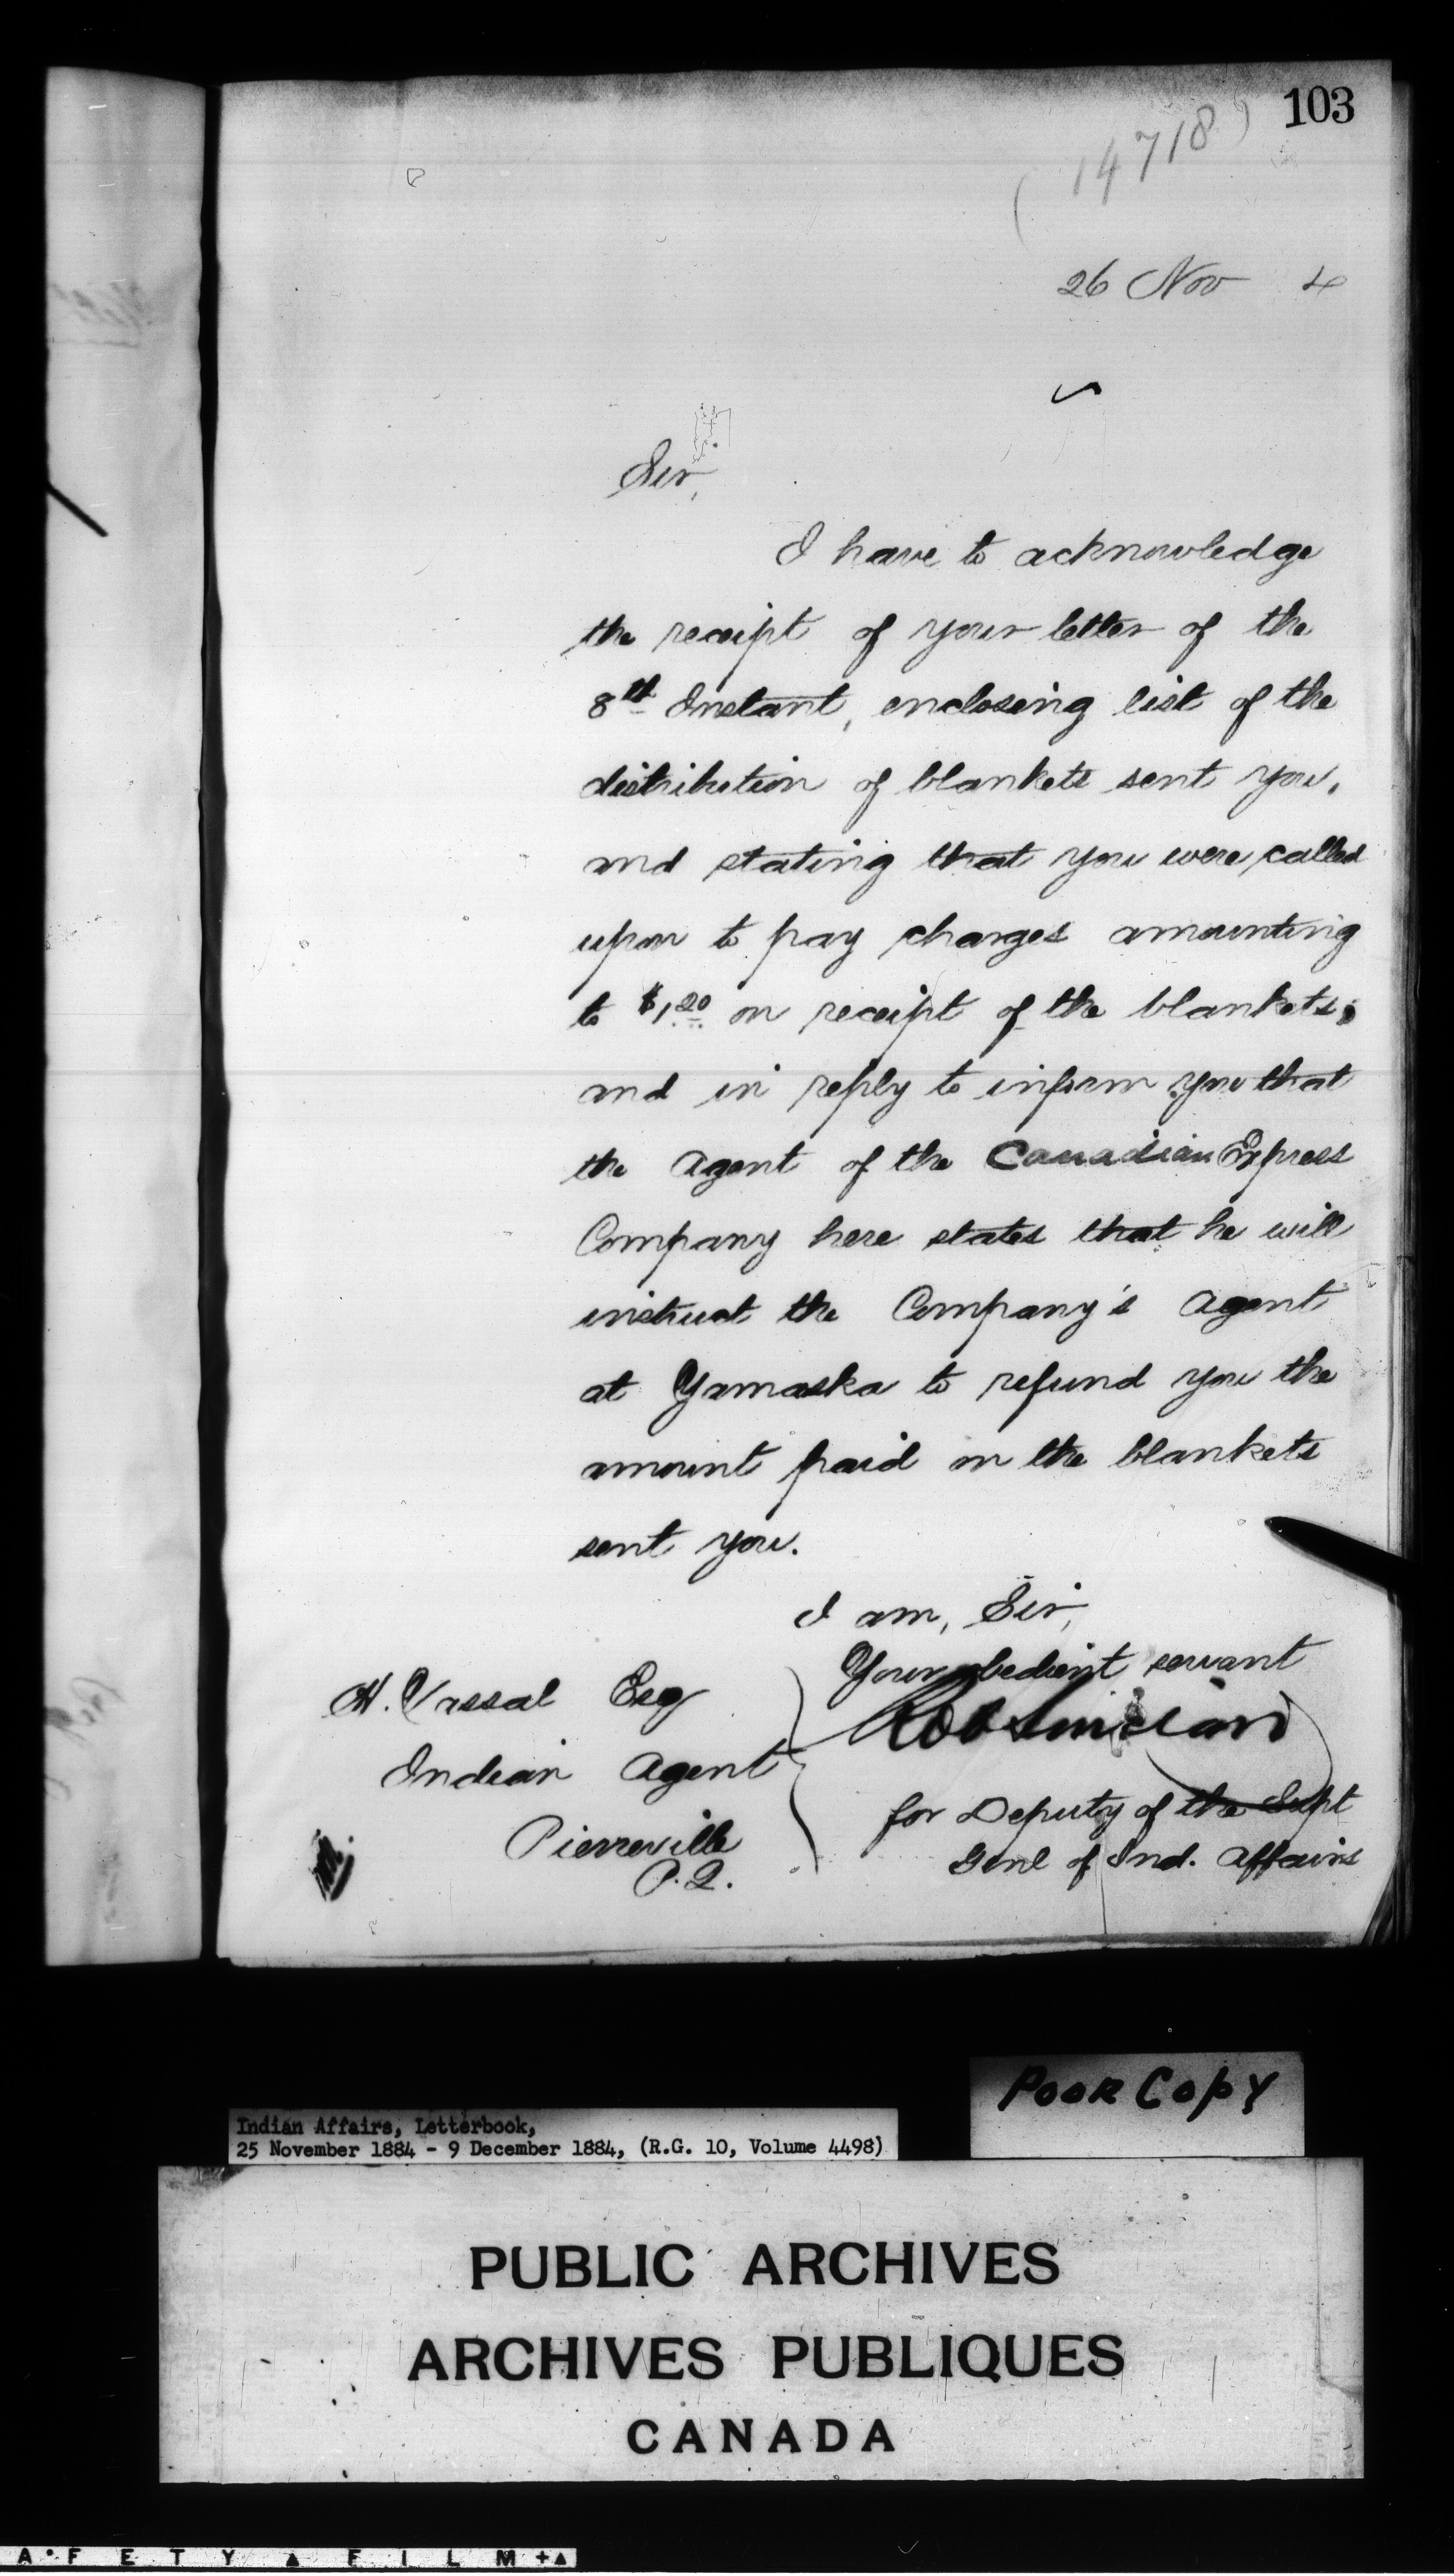 103
(14718)
26 Nov 4
Sir,
I have to acknowledge
the receipt of your letter of the
8th Instant, enclosing list of the
distribution of blankets sent you,
and stating that you were called
upon to pay charges amounting
to $1,20 on receipt of the blankets;
and in reply to inform you that
the Agent of the Canadian Express
Company here states that he will
instruct the Company's Agent
at Yamaska to refund you the
amount paid on the blankets
sent you.
I am, Sir,
Your obedient servant
Rob Sinclair
for Deputy of the Supt
Genl of Ind. Affairs
H. Vassal Esq
Indian Agent
Pierreville
P.Q.
Poor Copy
Indian Affairs, Letterbook,
25 November 1884 - 9 December 1884, (R.G. 10, Volume 4498)
PUBLIC ARCHIVES
ARCHIVES PUBLIQUES
CANADA
A F E T Y FILM